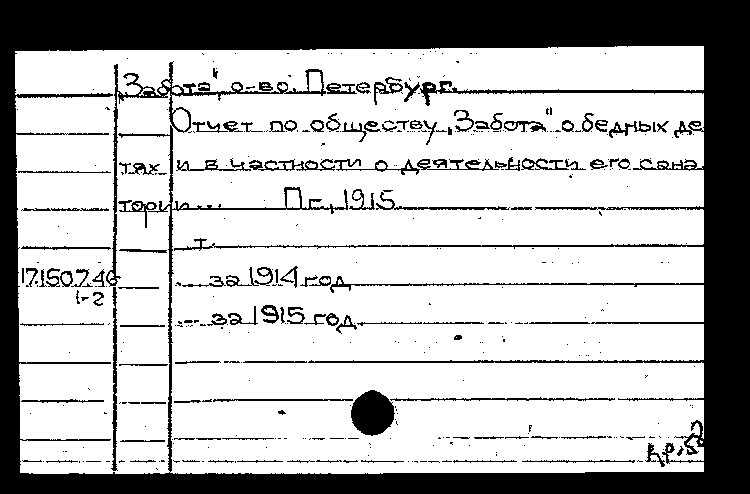 „Забота", о-во. Петербург.
Отчет по обществу „Забота" о бедных де
тях и в частности о деятельности его сана
тории ... Пг., 1915
т.
17.150.7.46 ... за 1914 год
1-2
... за 1915 год.